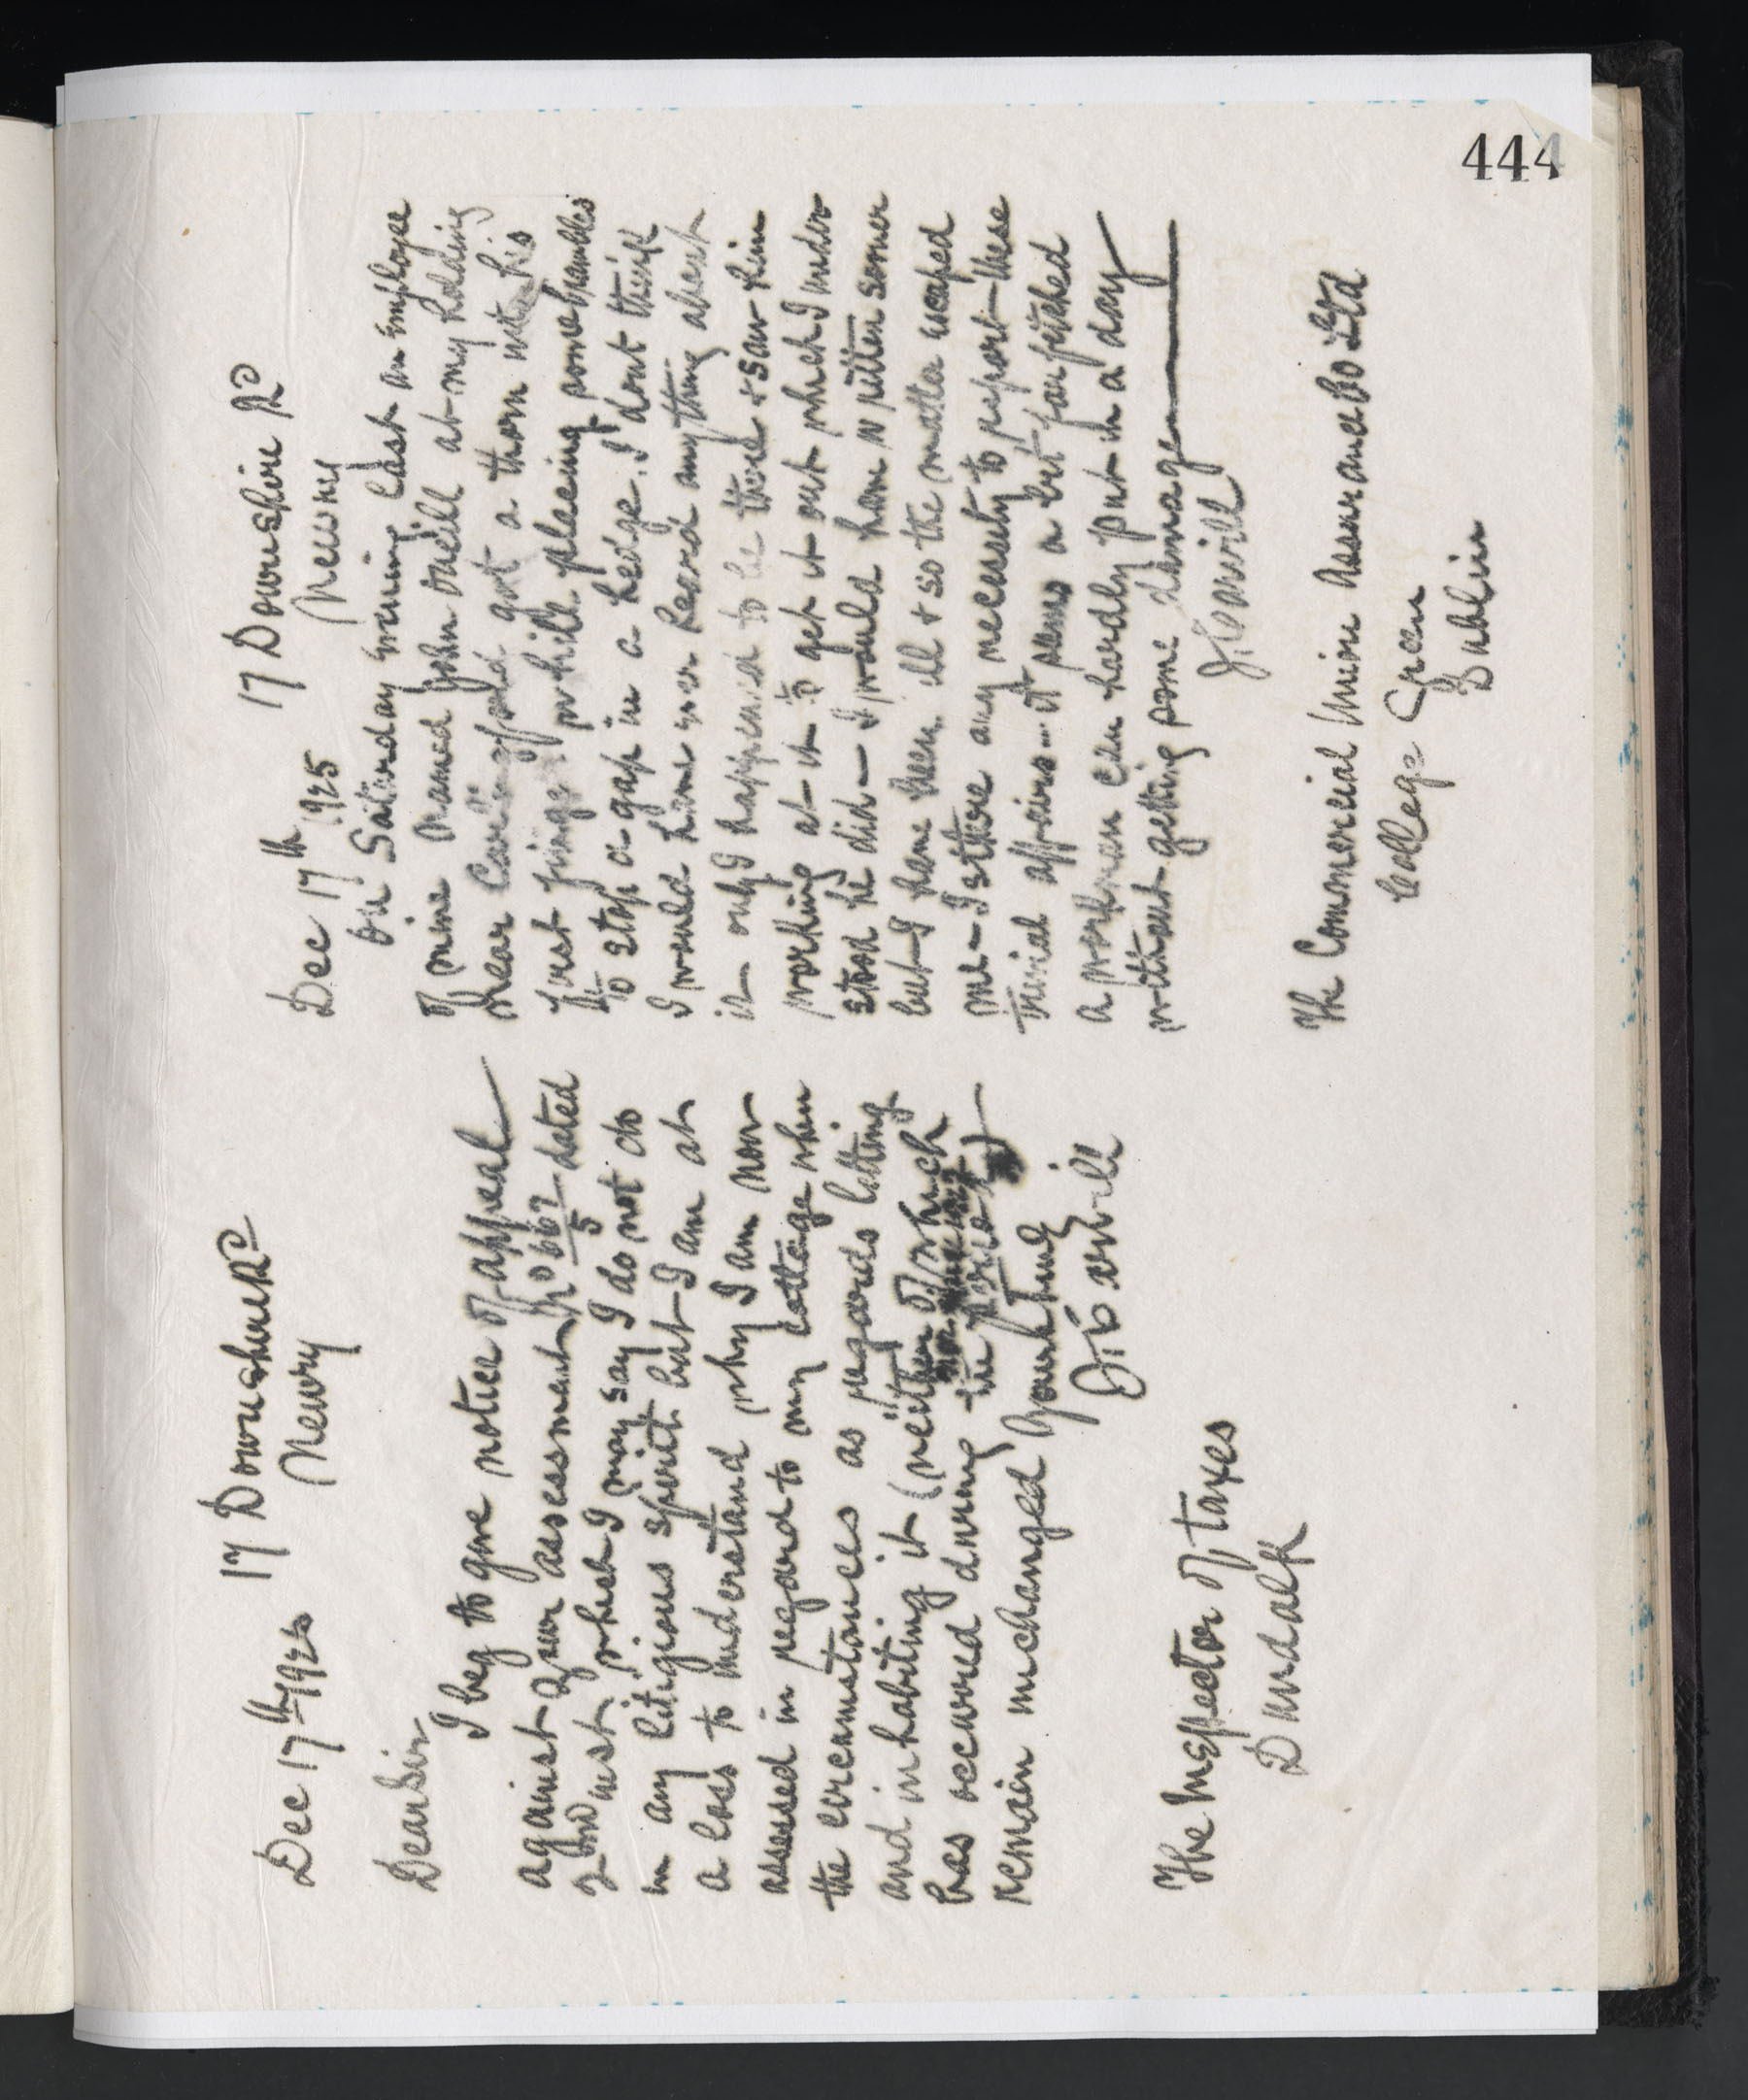 444
Dec 17th 1925 17 Downshire Rd
Newry
Dear Sir
I beg to give notice of appeal
against your assessment No 667/5 dated
2nd inst which I may say I do not do
in any litigious spirit but I am at
a loss to understand why I am now
assessed in regard to my cottage when
the circumstances as regards letting
and inhabiting it (neither of which
has occurred during the
remain unchanged Yours truly
The Inspector of taxes
Dundalk
Dec 17th 1925 17 Downshire Rd
Newry
On Saturday evening last an employe
of mine named John Oneill at my holding
near Carlingford got a thorn into his
first finger while placing some brambles
to stop a gap in a hedge. I dont think
I would have ever heard anything about
it only I happened to be there & saw him
working at it to get it out which I under
stood he did — I would have written sooner
but I have been ill & so the matter escaped
me — Is there any necessity to report these
trivial affairs — it seems a bit far fetched
a workman can hardly put in a day
without getting some damage
The Commercial Union Assurance Co Ltd
College Green
Dublin